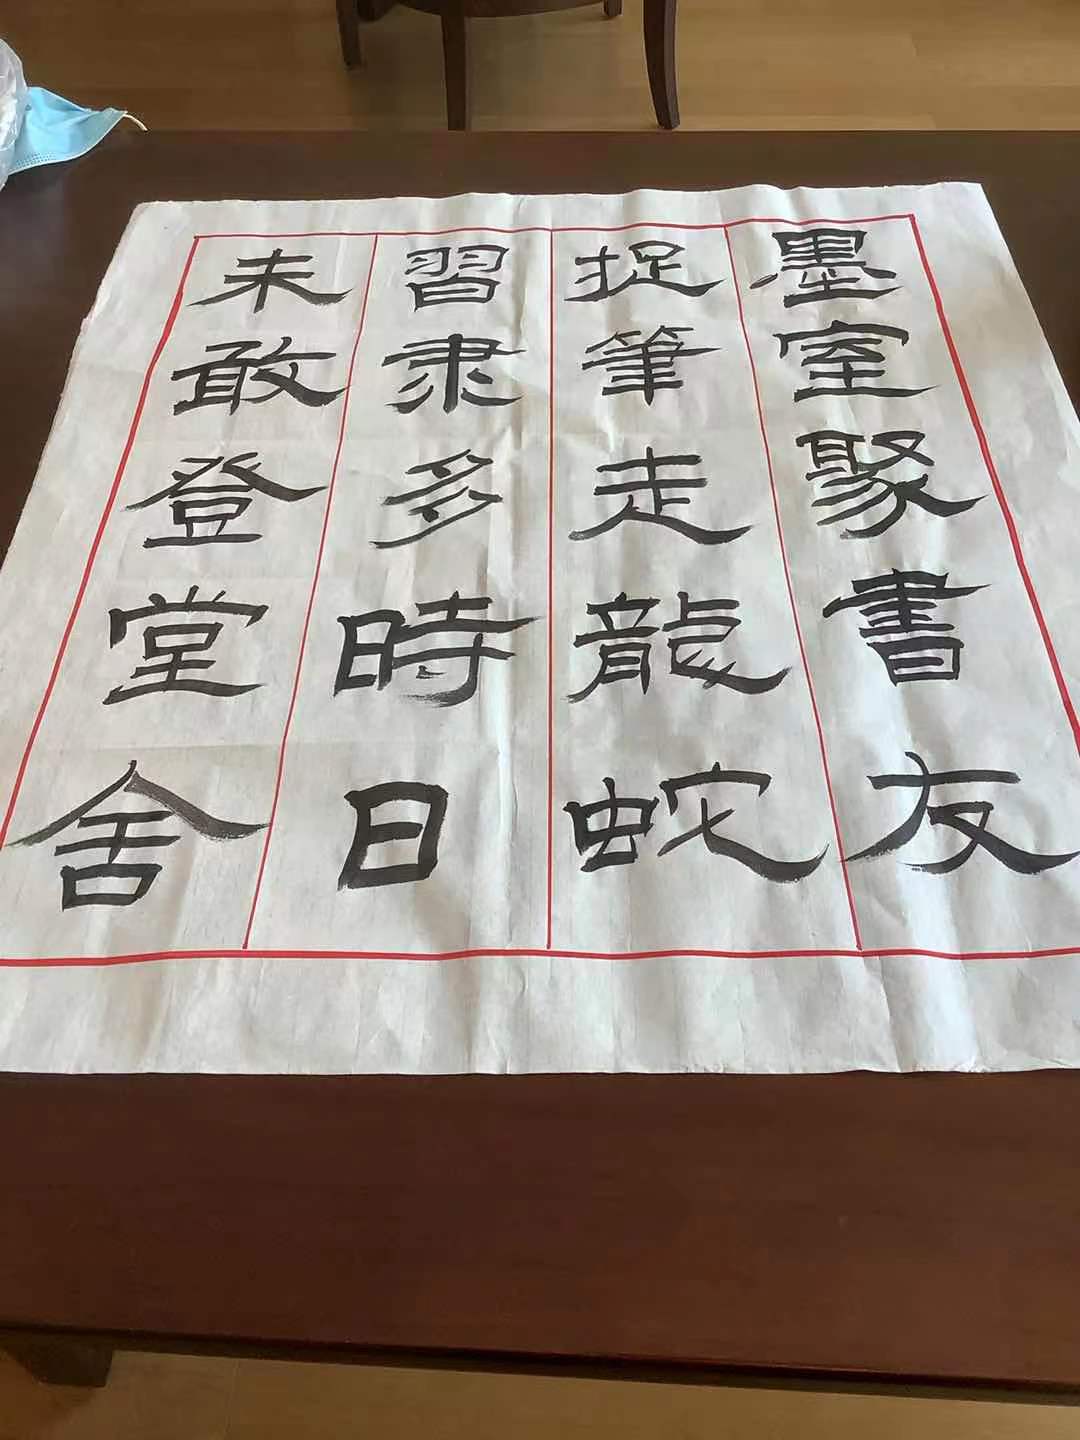 墨室聚書友
捉筆走龍蛇
習隶多時日
未敢登堂舍